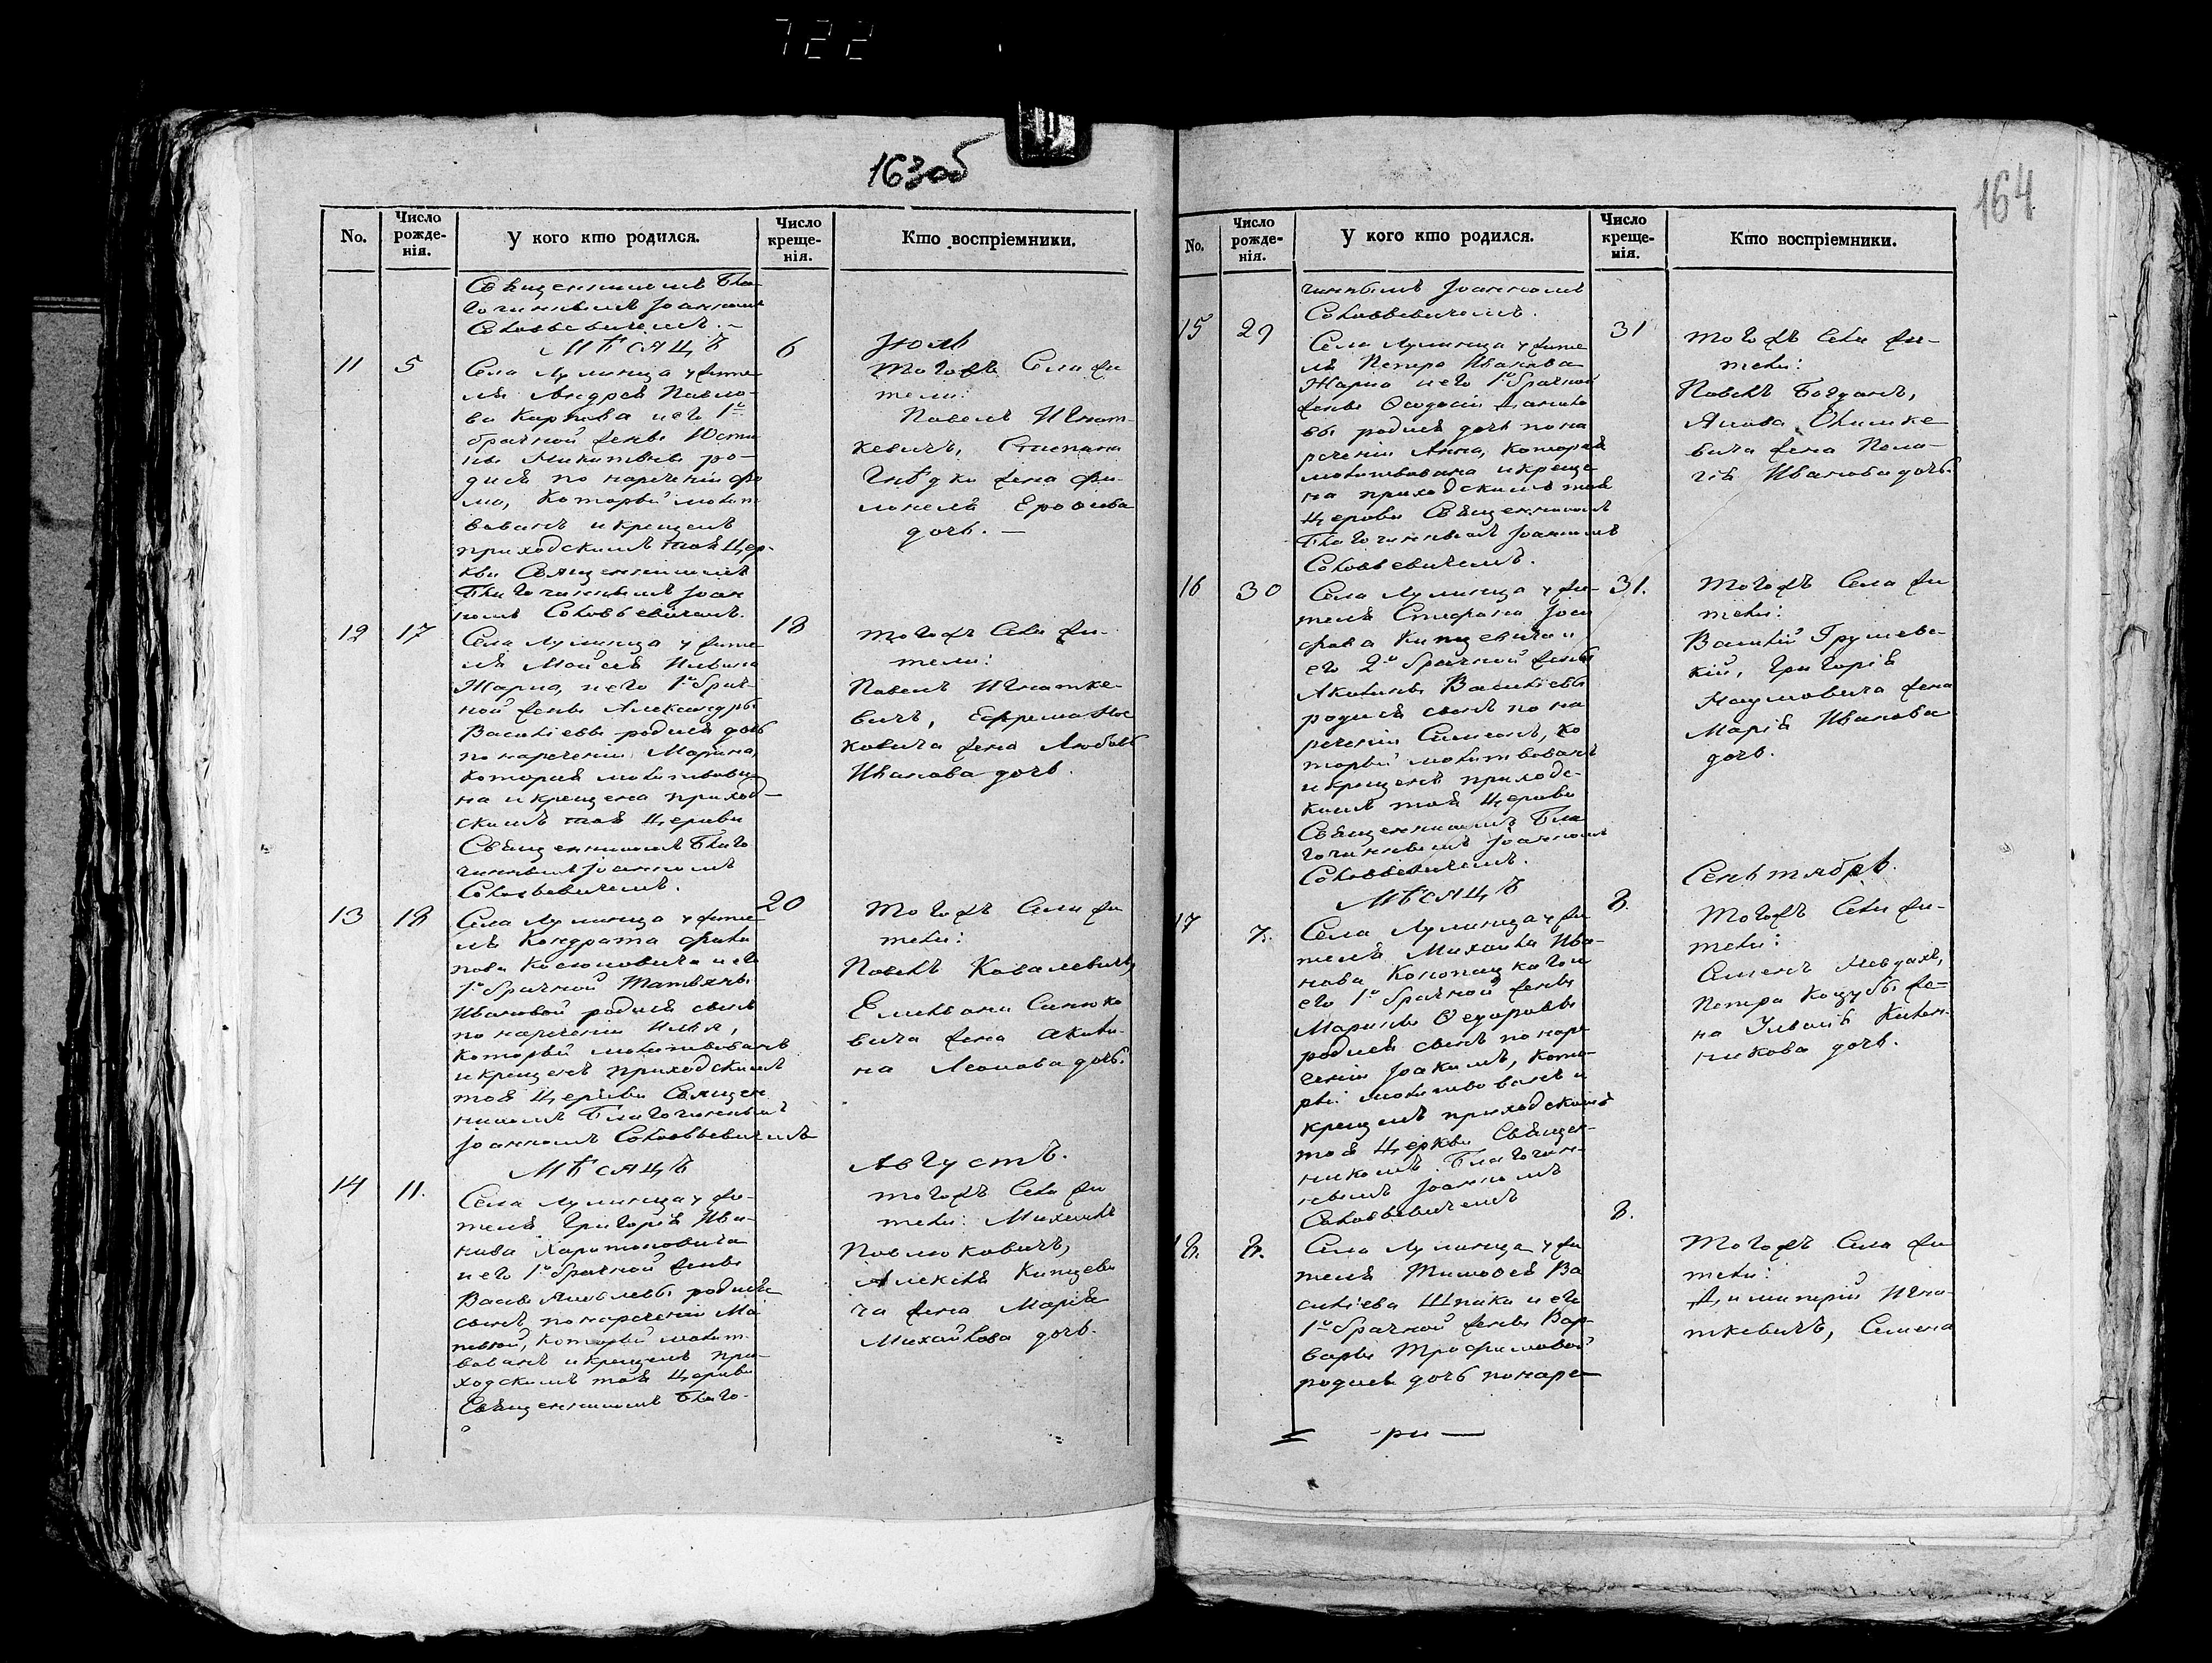 722
163об
No.
Число рожде-нія.
У кого кто родился.
Число креще-нія.
Кто воспріемники.
Священникомъ Бла
гочиннымъ Іоанномъ
Соловьевичемъ.
Мѣсяцъ
Іюль
11
5
6
Села Лулинца у жите
ля Андрея Павло-
ва Карпова и его 1о
брачной жены Юсти
ны Микитины ро-
дися по наречении Фо
ма, который молит
вованъ и крещемъ
приходскимъ тоя Цер-
кви Священникомъ
Благочиннымъ Іоан
номъ Соловьевичемъ.
Тогожъ Села жи
тели:
Павелъ Игнат-
кевичъ, Степана
Гнѣдки жена Фи-
Ерофіева
дочь. —
12
17
18
Села Лулинца у жите
ля Мойсея Ильина
Жарна, и его 1о брач-
ной жены Александры
Василіевы родися дочь
по наречении Марина,
которая молитвова
на и крещена приход-
скимъ тоя Церкви
Священникомъ Благо
чиннымъ Іоанномъ
Соловьевичемъ.
Тогожъ Села жи-
тели:
Павелъ Игнатке-
вичъ, Ефрема
ковича жена Любовь
Иванова дочь.
13
18
20
Села Лулинца у жите-
ля Кондрата Фили
пова и его
1о брачной Татьяны
Ивановой родися сынъ
по наречении Илья,
который молитвованъ
и крещенъ приходскимъ
тоя Церкви Священ
никомъ Благочиннымъ
Іоанномъ Соловьевичемъ
Тогожъ Села жи
тели:
Павелъ Ковалевичъ,
Емельяна Синюко
вича жена Акили-
на Леонова дочь.
Мѣсяцъ
Августъ.
14
11.
Села Лулинца у жи-
теля Григорія Ива-
нова Харитоновича
и его 1о брачной жены
Васы Яковлевы родися
сынъ по наречении Ма
твѣй, который молит-
вованъ и крещемъ при-
ходскимъ тоя Церкви
Священникомъ Благо-
Тогожъ Села жи
тели: Михаилъ
Павлюковичъ,
Алексѣя Кипцеви
ча жена Марія
Михайлова дочь.
164
No.
Число рожде-нія.
У кого кто родился.
Число креще-нія.
Кто воспріемники.
чиннымъ Іоанномъ
Соловьевичемъ.
15
29
31
Села Лулинца у жите
ля Петра Иванова
Жарна и его 1о брачной
жены Ѳеодосіи Данило
вы родися дочь по на
речении Анна, которая
молитвована и креще-
на приходскимъ тоя
Церкви Священникомъ
Благочиннымъ Іоанномъ
Соловьевичемъ.
Тогожъ Села жи-
тели:
Павелъ Богданъ,
Якова Климке
вича жена Пела-
гія Иванова дочь.
16
30
31.
Села Лулинца у жи-
теля Стефана Іоси
фова Кипцевича и
его 2о брачной жены
Акилины Василіевы
родися сынъ по на
речении Симеонъ, ко
торый молитвованъ
и крещенъ приходс-
кимъ тоя Церкви
Священникомъ Бла
гочиннымъ Іоанномъ
Соловьевичемъ.
Тогожъ Села жи
тели:
Василій Грушевс-
кій, Григорія
Наумовича жена
Марія Иванова
дочь.
Мѣсяцъ
Сеньтябрь.
17
7.
8.
Села Лулинца у жи
теля Михаила Ива-
нова Конопацкого и
его 1о брачной жены
Марины Ѳедоровы
родися сынъ по наре
чении Іоакимъ, кото-
рый молитвованъ и
крещемъ приходскимъ
тоя Церкви Священ-
никомъ Благочин-
нымъ Іоанномъ
Соловьевичемъ
Тогожъ Села жи-
тели:
Семенъ Невдахъ,
Петра Коцубы же-
на Ульянія
дочь.
18.
8.
8.
Села Лулинца у жи
теля Тимоѳея Ва
силіева Шпака и его
1о брачной жены Вар-
вары Трофимовой
родися дочь по наре-
Тогожъ Села жи
тели:
Димитрій Игна-
ткевичъ, Семена
-ри—